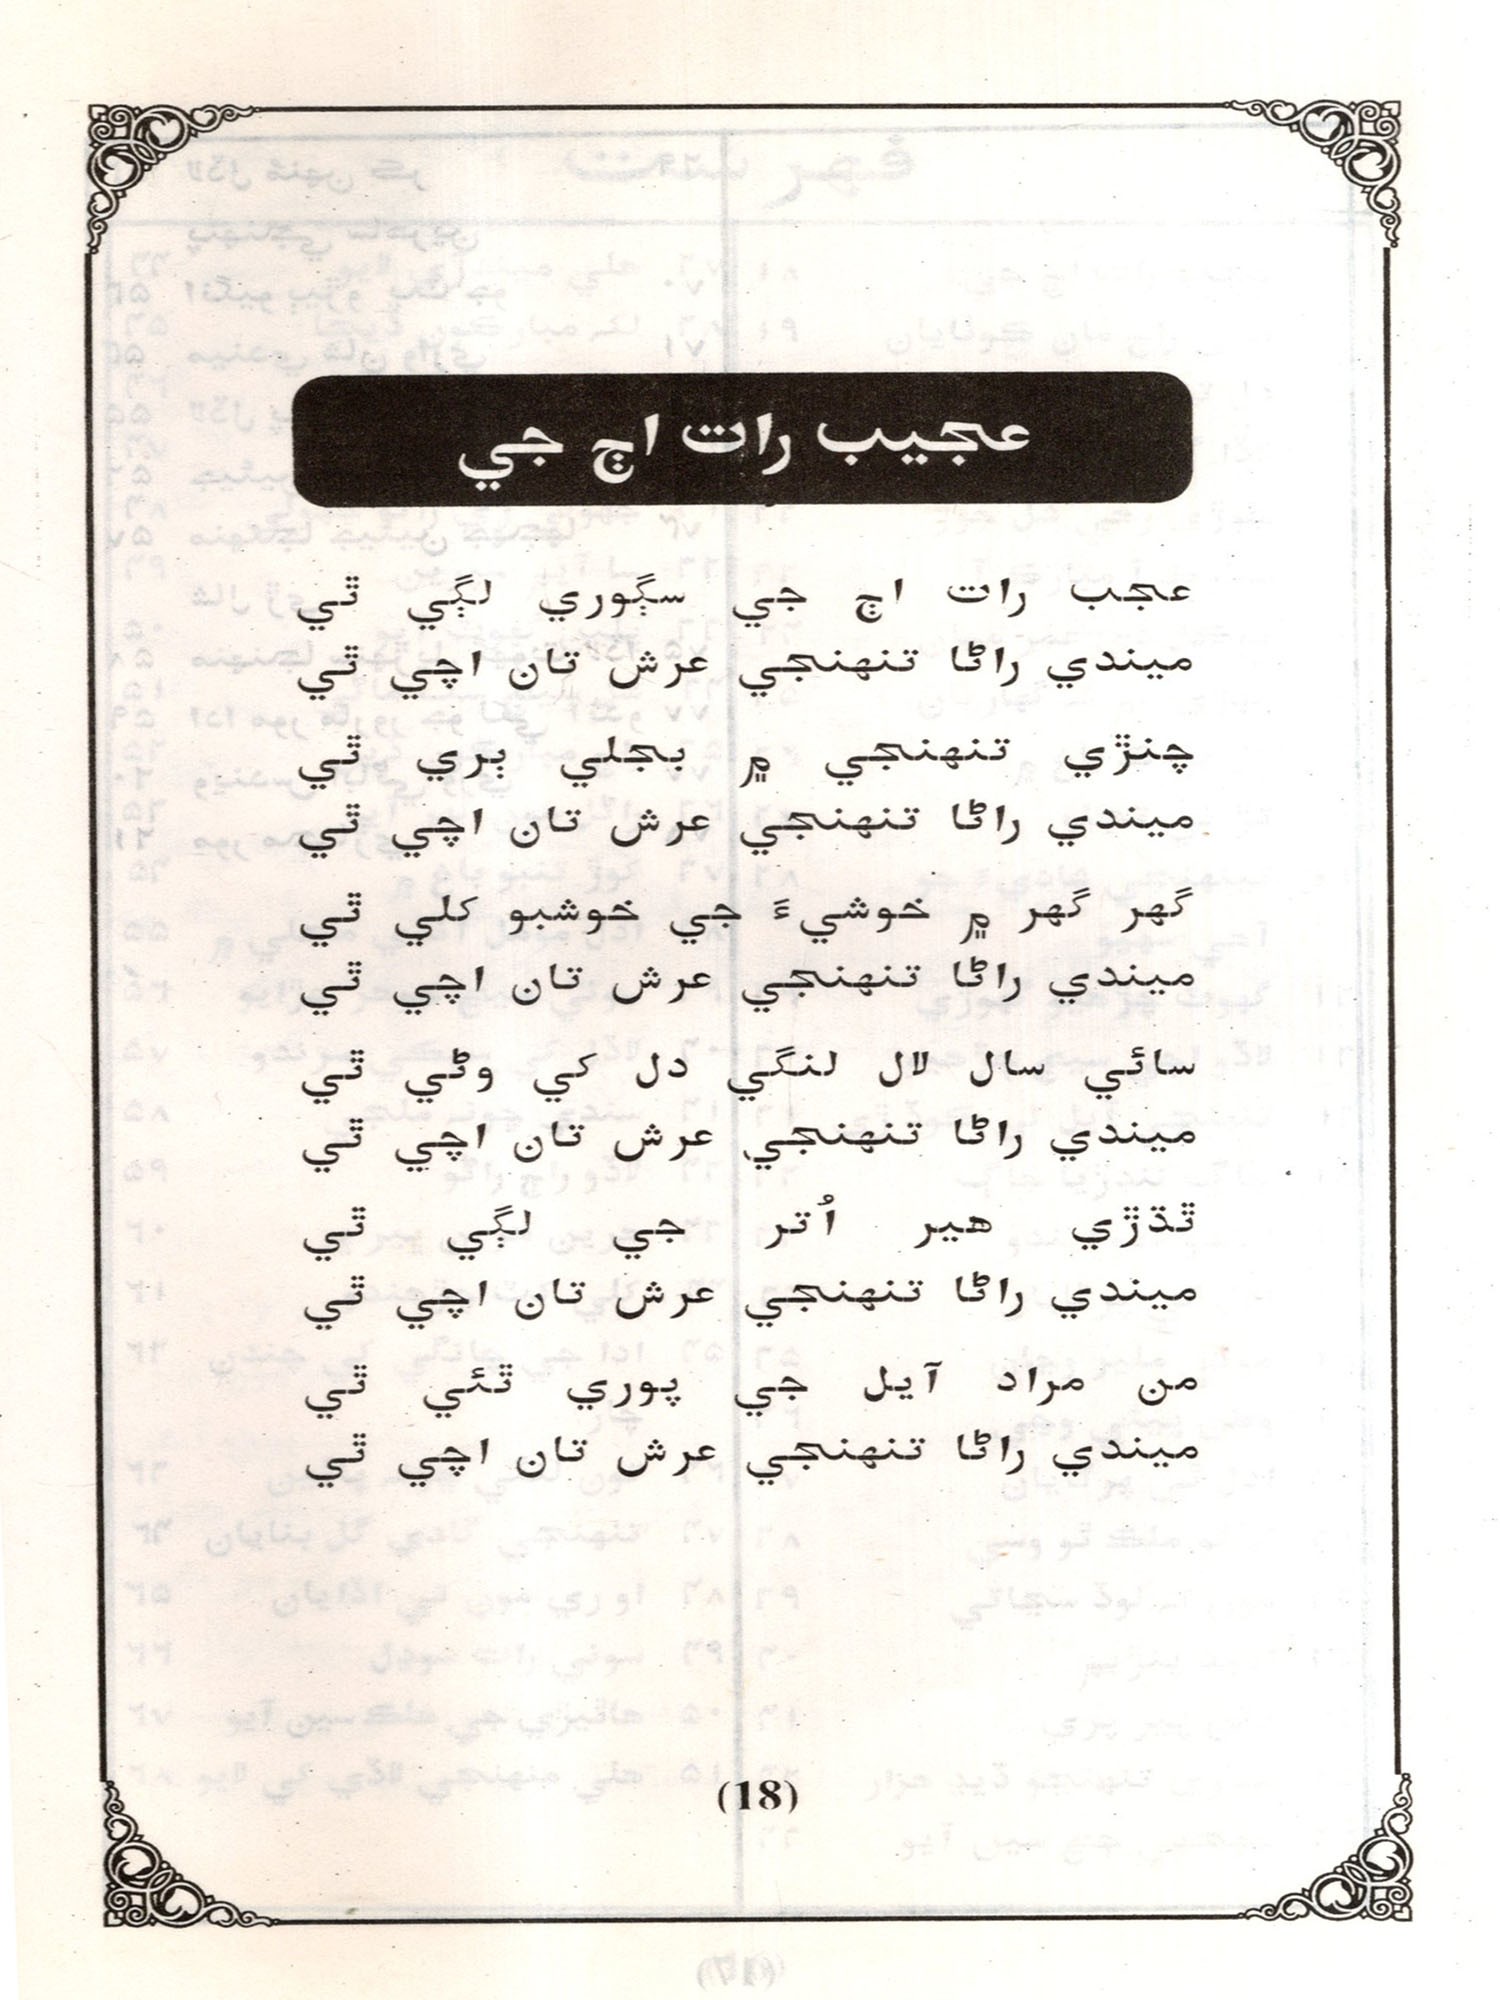 عجيب رات اڄ جي
عجب رات اڄ جي سڳوري لڳي ٿي
ميندي راڻا تنهنجي عرش تان اچي ٿي
چنڙي تنهنجي ۾ بجلي ٻري ٿي
ميندي راڻا تنهنجي عرش تان اچي ٿي
گهر گهر ۾ خوشيءَ جي خوشبو کلي ٿي
ميندي راڻا تنهنجي عرش تان اچي ٿي
سائي سال لال لنگي دل کي وڻي ٿي
ميندي راڻا تنهنجي عرش تان اچي ٿي
ٿڌڙي هير اُتر جي لڳي ٿي
ميندي راڻا تنهنجي عرش تان اچي ٿي
من مراد آيل جي پوري ٿئي ٿي
ميندي راڻا تنهنجي عرش تان اچي ٿي
(18)